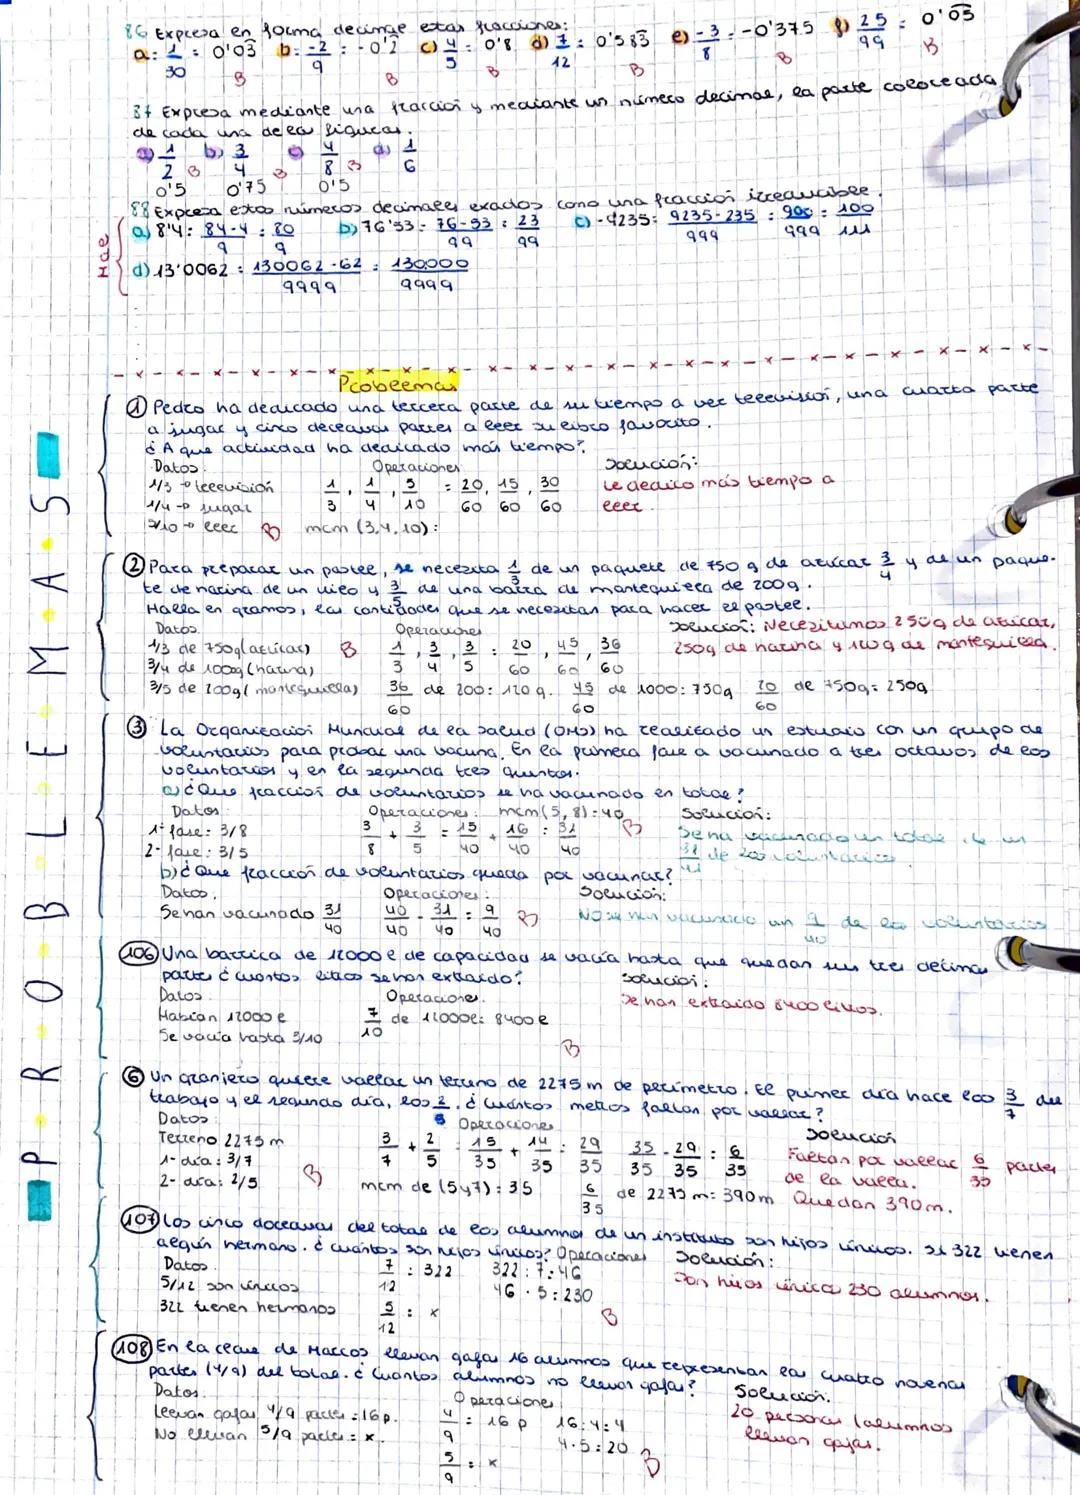 86 Expresa en forma decimal estas fracciones:
a: 1/30 = 0'03 b: -2/9 = -0'2 c) 4/5 = 0'8 d) 7/12 = 0'583 e) -3/8 = -0'375 f) 25/99 = 0'03
B B B B B B
87 Expresa mediante una fracción y mediante un número decimal, la parte coloreada
de cada una de las figuras.
a) 1/2 B b) 3/4 B c) 4/8 B d) 1/6
0'5 0'75 0'5
88 Expresa estos números decimales exactos como una fracción irreducible.
Mal
a) 8'4 = 84-4/9 = 80/9 b) 76'53 = 76-53/99 = 23/99 c) -4235 = 9235-235/999 = 900/999 = 100/111
d) 13'0062 = 130062-62/9999 = 130000/9999
Problemas
PROBLEMAS
① Pedro ha dedicado una tercera parte de su tiempo a ver televisión, una cuarta parte
a jugar y cinco deceavas partes a leer su libro favorito.
¿A que actividad ha dedicado más tiempo?
Datos: Operaciones Solución:
1/3 → televisión 1/3, 1/4, 5/10 = 20/60, 15/60, 30/60 Le dedico más tiempo a
1/4 → jugar leer
5/10 → leer B mcm (3,4,10):
② Para preparar un pastel, se necesita 1/3 de un paquete de 750 g de azúcar 3/4 y de un paque-
te de harina de un kilo y 3/5 de una barra de mantequilla de 200g.
Halla en gramos, las cantidades que se necesitan para hacer el pastel.
Datos Operaciones Solución: Necesitamos 250g de azúcar,
1/3 de 750g (azúcar) B 1/3, 3/4, 3/5 = 20/60, 45/60, 36/60 250g de harina y 120g de mantequilla.
3/4 de 1000g (harina)
3/5 de 200g (mantequilla) 36/60 de 200: 120g. 45/60 de 1000: 750g 20/60 de 750g = 250g
③ La Organización Mundial de la Salud (OMS) ha realizado un estudio con un grupo de
voluntarios para probar una vacuna. En la primera fase a vacunado a tres octavos de los
voluntarios y en la segunda tres quintos.
a) ¿Que fracción de voluntarios se ha vacunado en total?
Datos Operaciones: mcm(5,8)=40 Solución:
1ª fase: 3/8 3/8 + 3/5 = 15/40 + 16/40 = 31/40 B Se ha vacunado en total
2- fase: 3/5 31 de los voluntarios
b) ¿Que fracción de voluntarios queda por vacunar?
Datos: Operaciones: Solución:
Se han vacunado 31/40 40/40 - 31/40 = 9/40 B No se han vacunado un 9/40 de los voluntarios
106 Una barrica de 12000 l de capacidad se vacía hasta que quedan sus tres décimas
partes ¿cuantos litros se han extraído? Solución:
Datos Operaciones. Se han extraído 8400 litros.
Habían 12000 l 7/10 de 12000l: 8400 l
Se vacía hasta 3/10 B
⑥ Un granjero quiere vallar un terreno de 2275 m de perímetro. El primer día hace los 3/7 del
trabajo y el segundo día, los 2/5. ¿Cuántos metros faltan por vallar?
Datos: Operaciones Solución
Terreno 2275 m 3/7 + 2/5 = 15/35 + 14/35 = 29/35 35/35 - 29/35 = 6/35 Faltan por vallar 6/35 partes
1- día: 3/7 de la valla.
2- día: 2/5 B mcm de (5 y 7) = 35 6/35 de 2275 m: 390 m Quedan 390 m.
107 Los cinco doceavas del total de los alumnos de un instituto son hijos únicos. Si 322 tienen
algún hermano. ¿Cuántos son hijos únicos? Operaciones Solución:
Datos 7/12 = 322 322:7=46 Son hijos únicos 230 alumnos.
5/12 son únicos 46·5=230
322 tienen hermanos 5/12 = x B
108 En la clase de Marcos llevan gafas 16 alumnos que representan las cuatro novenas
partes (4/9) del total. ¿Cuantos alumnos no llevan gafas?
Datos Operaciones Solución:
Llevan gafas 4/9 partes = 16 p. 4/9 = 16 p 16:4=4 20 personas (alumnos
No llevan 5/9 partes = x 5/9 = x 4·5=20 B llevan gafas.